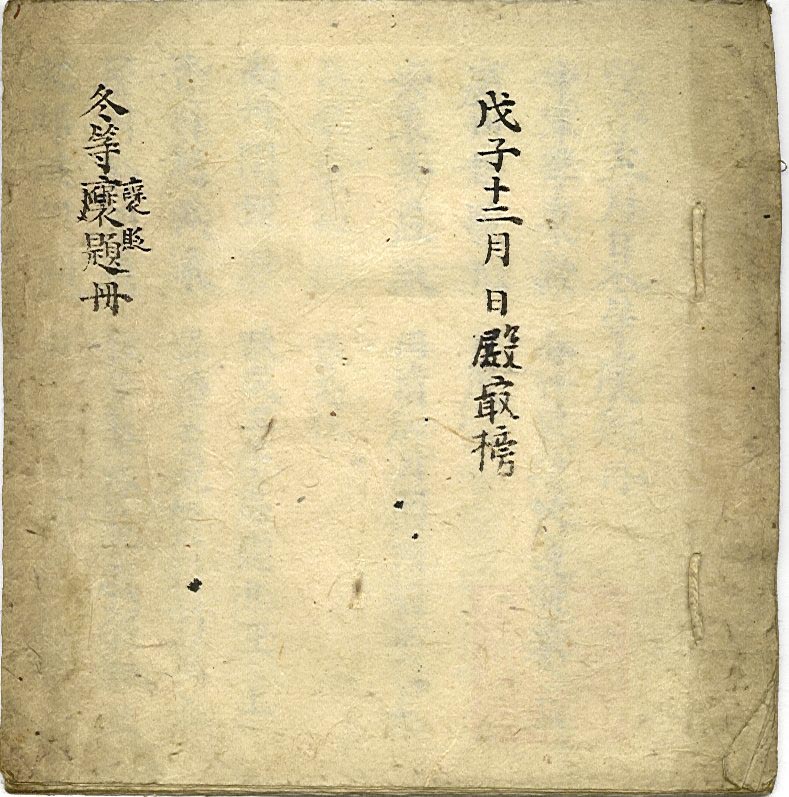 戊子十二月 日殿最榜
冬等褒題冊
褒貶